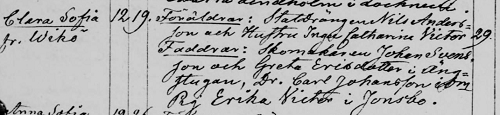 Clara Sofia 12. 19. Föräldrar: Statdrängen Nils Anders-
fr. Wikö son och Hustru Inga Catharina Victor 29
Faddrar: Skomakaren Johan Svens-
son och Greta Ericsdotter i Äng-
stugan, Dr. Carl Johansson
Pig. Erika Victor i Jonsbo.
Anna Sofia